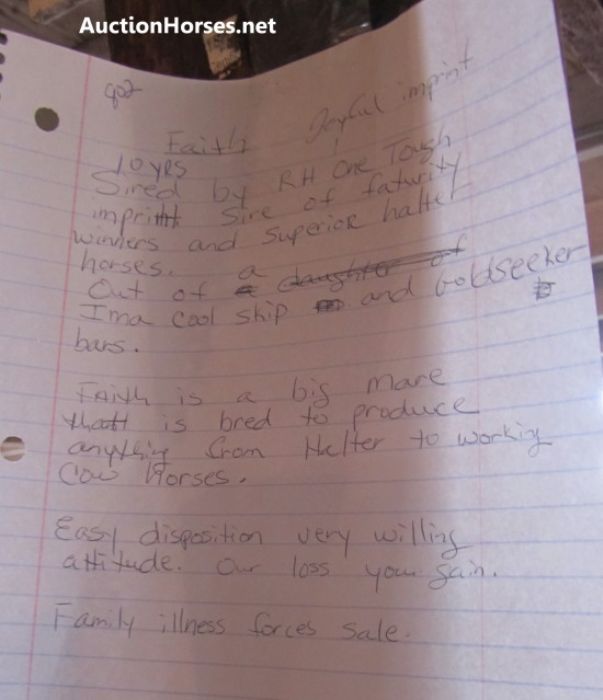 AuctionHorses.net
902
Joyful imprint
Faith
10 yrs
Sired by RH One Tough
imprint sire of faturity
winners and Superior halter
horses.
Out of a daughter of
Ima Cool Skip and Goldseeker
bars.
Faith is a big mare
thatt is bred to produce
anything from Halter to working
Cow Horses.
Easy disposition very willing
attitude. Our loss your gain.
Family illness forces sale.